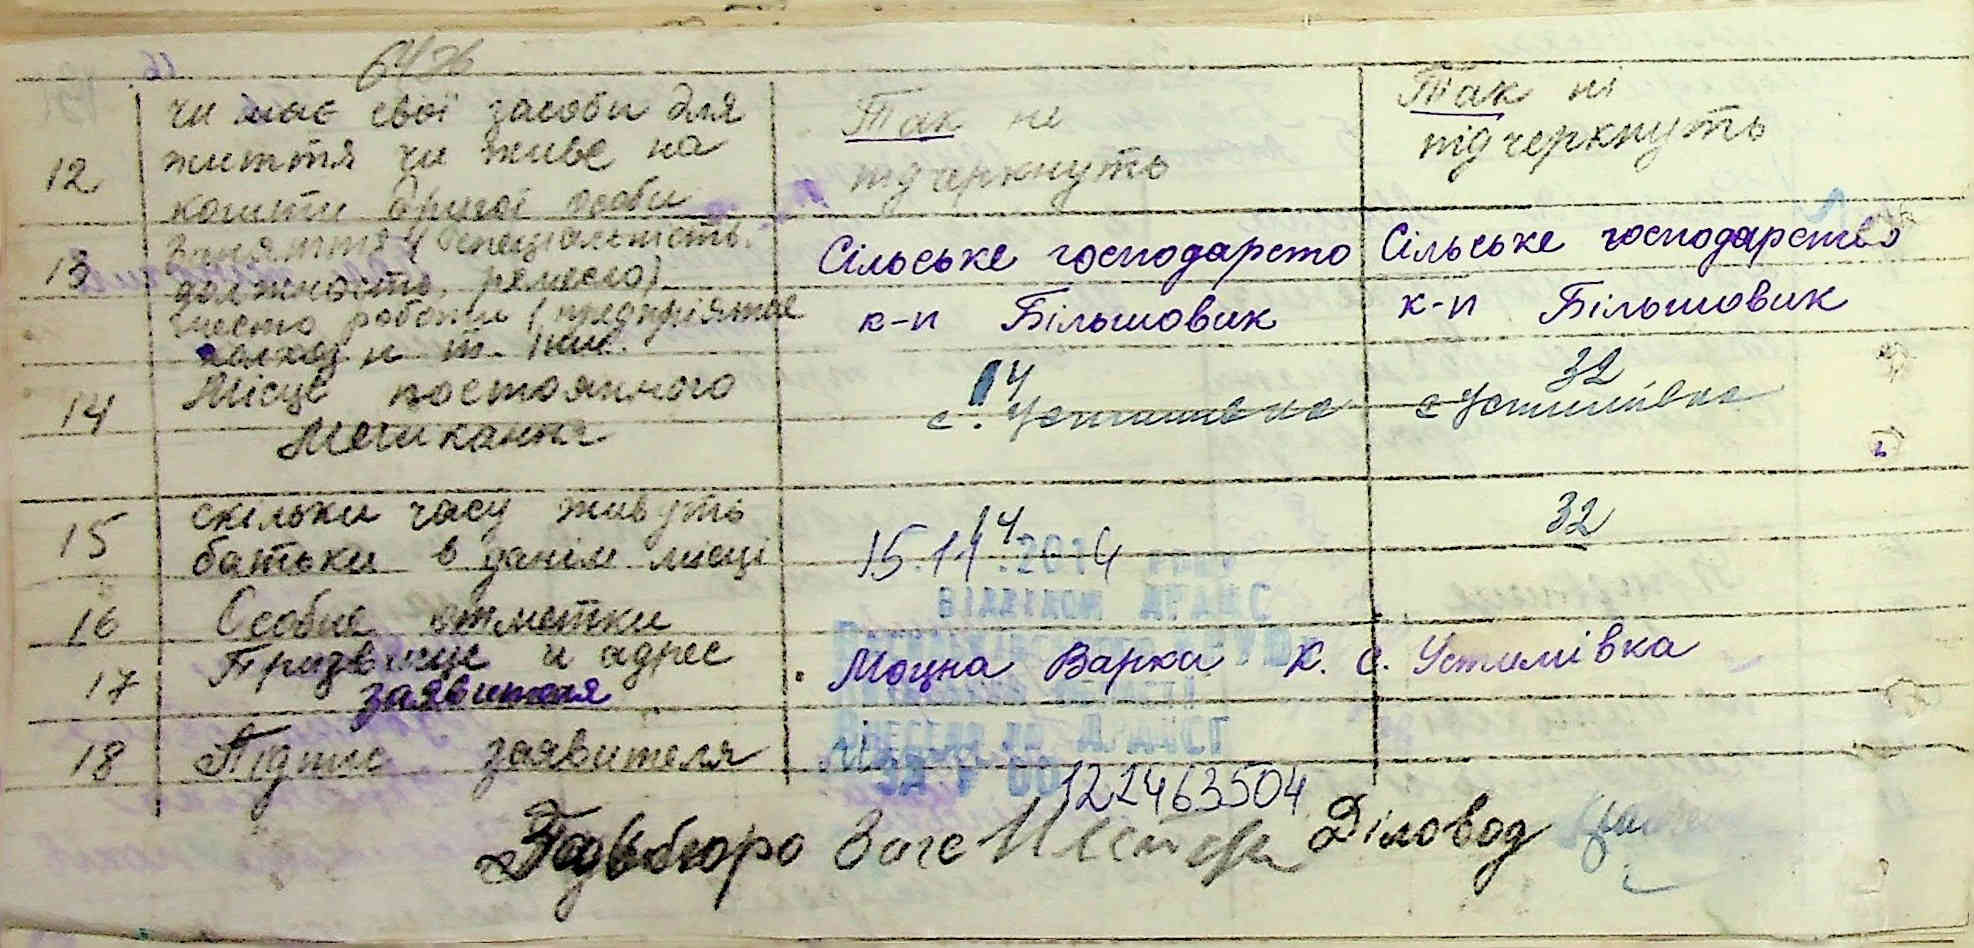 12 чи має свої засоби для
життя чи живе на
кошти другої особи
Так не
підчеркнуть
Так ні
підчеркнуть
13 Заняття (спеціальність.
должность, ремесло)
место работи (предпріятіе
колхоз и т.
Сільське господарсто
к-п Більшовик
Сільське господарство
к-п Більшовик
14 Місце постоянного
Мешкання
14
с. Устимівка
32
с Устимівка
15 скільки часу живуть
батьки в данім місці
14
32
15.14.2014 року
відділом ДРАЦС
16 Особие отметки
17 Призвище и адрес
заявителя
Моцна Варка К. с. Устимівка
області
Внесено до ДРАЦСГ
18 Підпис заявителя
за № 00122463504
Завбюро Загс Діловод